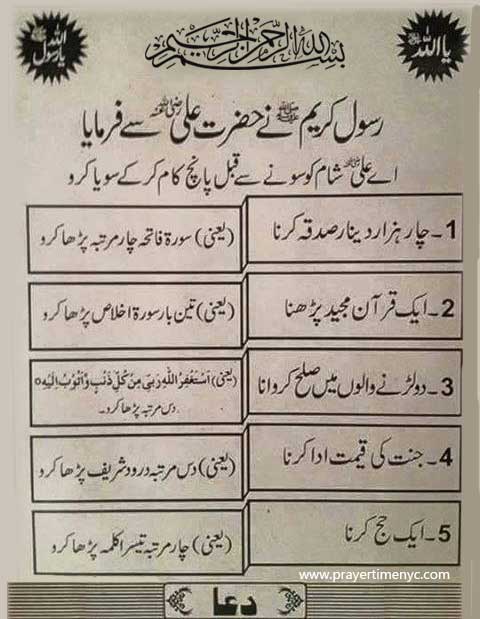 یا اللہ ﷻ
بِسْمِ اللهِ الرَّحْمٰنِ الرَّحِيْمِ
یا رسول اللہ
رسول کریم ﷺ نے حضرت علی رضی اللہ عنہ سے فرمایا
اے علی رضی اللہ عنہ شام کو سونے سے قبل پانچ کام کر کے سویا کرو
1۔ چار ہزار دینار صدقہ کرنا
(یعنی) سورۃ فاتحہ چار مرتبہ پڑھا کرو
2۔ ایک قرآن مجید پڑھنا
(یعنی) تین بار سورۃ اخلاص پڑھا کرو
3۔ دو لڑنے والوں میں صلح کروانا
(یعنی) اَسْتَغْفِرُ اللهَ رَبِّیْ مِنْ کُلِّ ذَنْبٍ وَّاَتُوْبُ اِلَیْهِ o
دس مرتبہ پڑھا کرو۔
4۔ جنت کی قیمت ادا کرنا
(یعنی) دس مرتبہ درود شریف پڑھا کرو
5۔ ایک حج کرنا
(یعنی) چار مرتبہ تیسرا کلمہ پڑھا کرو
www.prayertimenyc.com
دعا